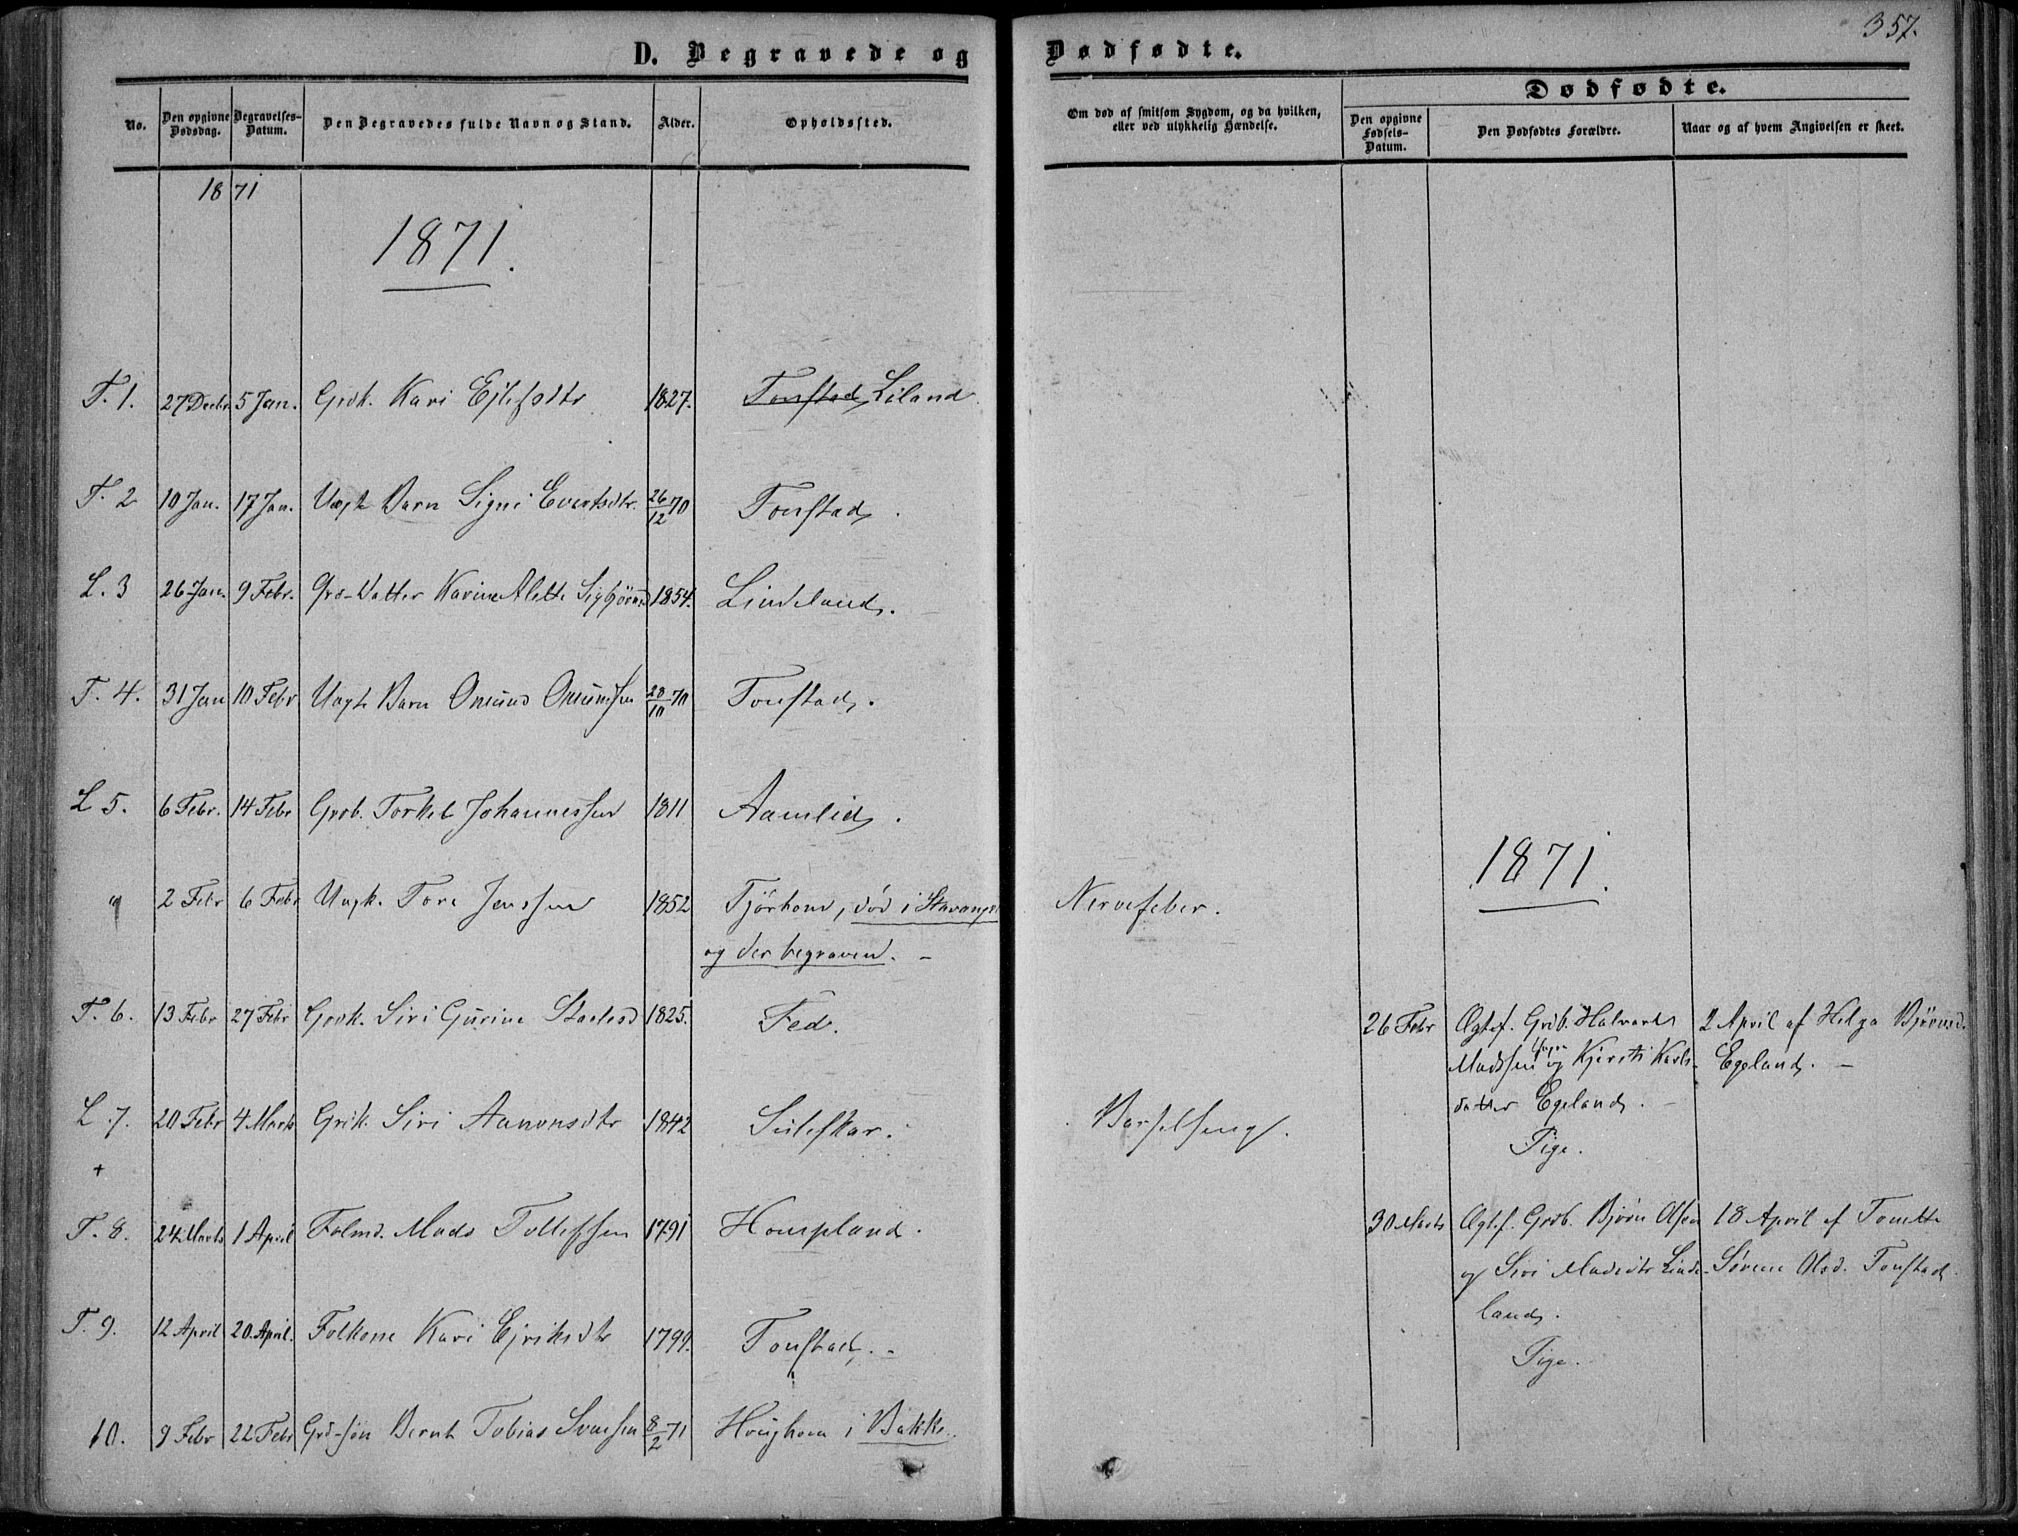 357.
D. Begravede og Dødfødte.
No.
Den opgivne Dødsdag.
Begravelses-Datum.
Den Begravedes fulde Navn og Stand.
Alder.
Opholdssted.
Om død af smitsom Sygdom, og da hvilken, eller ved ulykkelig Hændelse.
Dødfødte.
Den opgivne Fødsels-Datum.
Den Dødfødtes Forældre.
Naar og af hvem Angivelsen er skeet.
1871
1871.
T. 1. 27 Decbr 5 Jan. Grdk. Kari Ejlifsdtr 1827. Tonstad Liland
T. 2 10 Jan. 17 Jan. Uægte Barn Signi Evertsdtr. 26/12 70 Tonstad.
L. 3 26 Jan. 9 Febr. Grd-Datter Karine Alette Sigbjörnsd 1854. Lindeland.
T. 4. 31 Jan 10 Febr Uægte Barn Omund Omundsen 28/10 70 Tonstad.
L 5. 6 Febr. 14 Febr Grdb. Torkel Johannessen 1811 Aamlid.
" 2 Febr 6 Febr Ungk. Tore Jenssen 1852 Tjörhom, död i Stavanger
og der begraven. -
Nervefeber.
T. 6. 13 Febr 27 Febr Grdk. Siri Gurine Staalesd 1825. Fed.
L. 7. 20 Febr 4 Marts Grdk. Siri Aanonsdtr 1842 Suleskar.
Barselseng.
+
T. 8. 24 Marts 1 April Folmd. Mads Tollefsen 1791 Hompland.
T. 9. 12 April 20 April. Folkone Kari Ejriksdtr 1799. Tonstad. -
10. 9 Febr 22 Febr Grd-sön Bernt Tobias Svensen 8/2 71 Houghom i Bakke.
1871.
26 Febr Ægtef. Grdb. Halvard
Madssen og Kjersti Karls-
datter Egeland. -
Pige.
2 April af Helga Björnsd.
Egeland. -
30 Marts Ægtef. Grdb. Björn Olsen
og Siri Madsdtr Linde-
land.
Pige.
18 April af Tonette
Sörine Olsd. Tonstad.